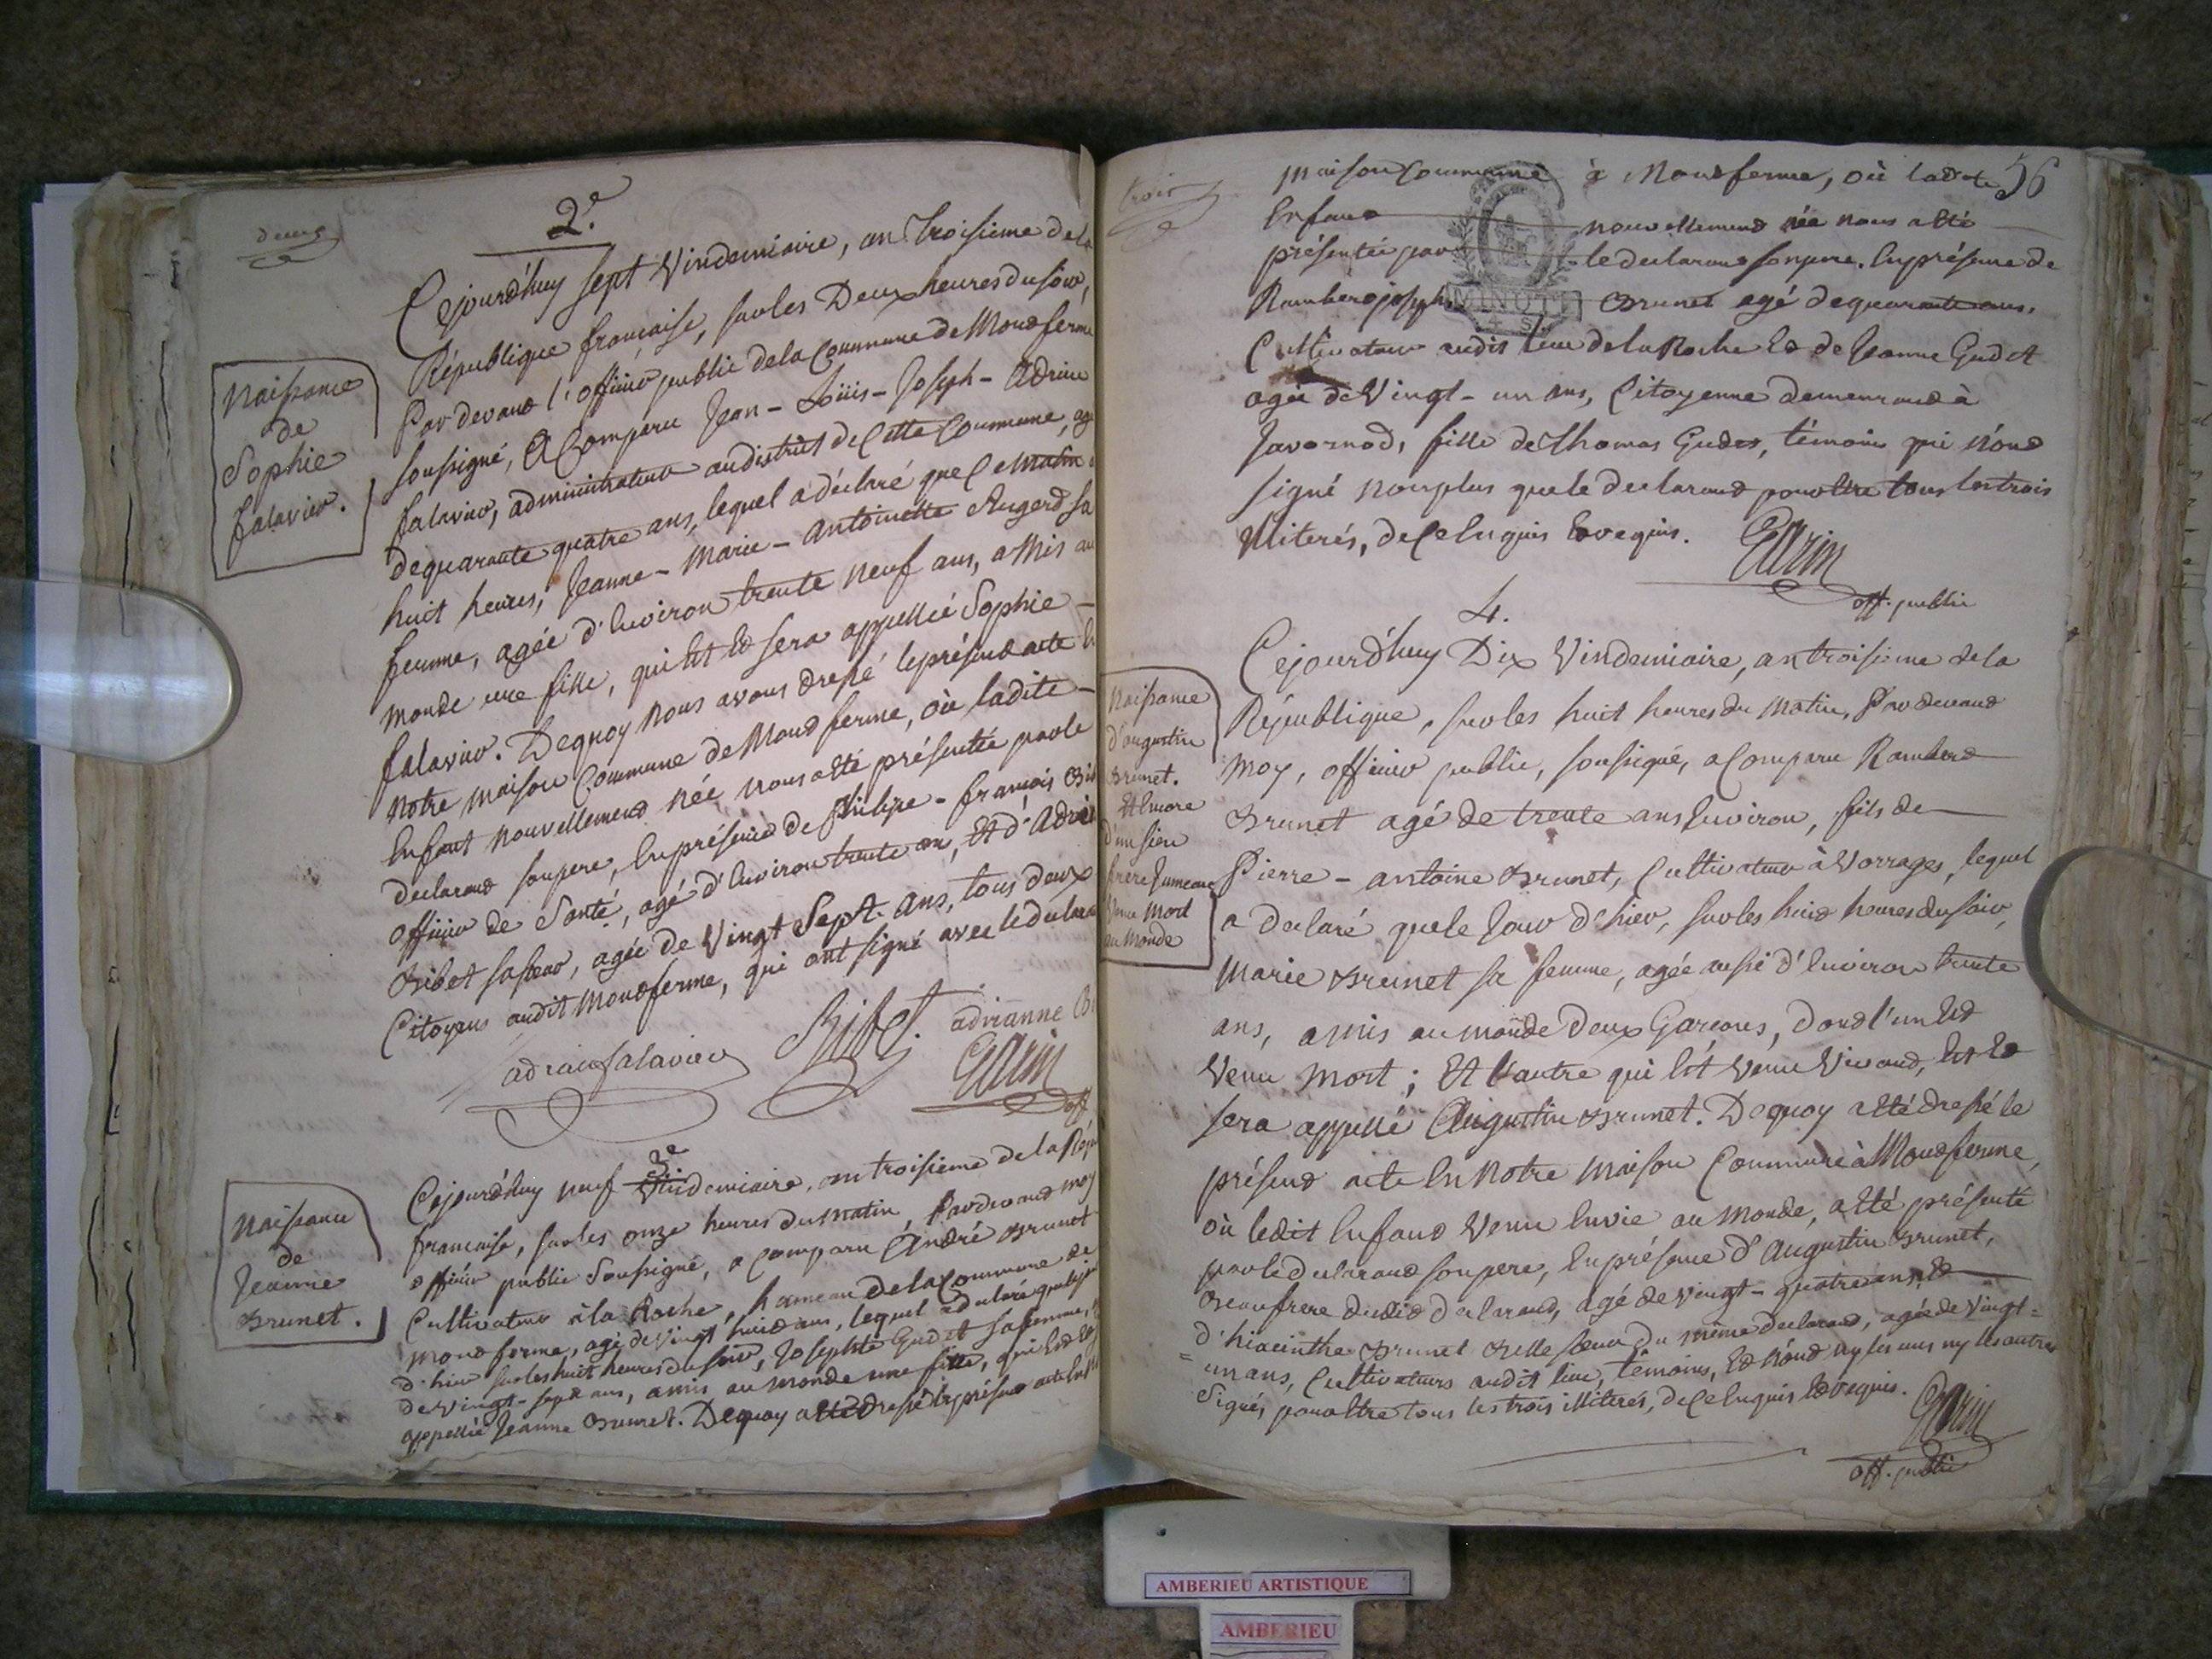 deux
2.e
Cejourd'huy sept Vindemiaire, an troisieme de la
République française, sur les Deux heures du soir,
Par devant l'officier public de la Commune de Montferme
soussigné, a Comparu Jean - Loüis - Joseph - Adrien
falavier, administrateur au district de Cette Commune, agé
de quarante quatre ans, lequel a déclaré que Ce matin a
huit heures, Jeanne - Marie - Antoinette Augerd sa
femme, agée d'Environ trente neuf ans, a Mis au
Monde une fille, qui Est Et sera appellée Sophie -
falavier. De quoy Nous avons dressé le présent acte En
Notre Maison Commune de Montferme, où ladite -
Enfant nouvellement née nous a Eté présentée par le
declarant son pere, En présence de Philipe - françois
officier de Santé, agé d'Environ trente ans, Et d'
Bibet sa sœur, agée de Vingt Sept ans, tous deux
Citoyens audit Montferme, qui ont signé avec le
Naissance
de
Sophie
falavier.
adrien falavier Bibet. adrianne
Garin
off
3e
Cejourd'huy neuf Vindemiaire, an troisieme de la
française, sur les onze heures du Matin, Pardevant moy
officier public Soussigné, a Comparu André Brunet
Cultivateur à la Roche, hameau de la Commune de
Montferme, agé de Vingt huit ans, lequel a declaré que le jour
d'hier sur les huit heures du soir, Josephte Gudet sa femme,
de Vingt - sept ans, a mis au Monde une fille, qui Est Et
appellée Jeanne Brunet. De quoy a Eté dressé le présent acte En
Naissance
de
Jeanne
Brunet.
trois
56
Maison Commune à Montferme, où ladite
Enfant nouvellement née nous a Eté
présentée par le declarant son pere. En présence de
Rambert joseph Brunet agé de quarante ans,
MINUTE
4 S.
Cultivateur audit lieu de la Roche Et de Jeanne Gudet
agée de Vingt - un ans, Citoyenne demeurant à
Javornod, fille de Thomas Gudet, témoins qui n'ont
signé non plus que le declarant pour Etre tous les trois
illiterés, de Ce Enquis Et requis.
Garin
off. public
4.
Cejourd'huy Dix Vindemiaire, an troisieme de la
République, sur les huit heures du Matin, Par devant
Moy, officier public, soussigné, a Comparu Rambert
Brunet agé de trente ans Environ, fils de
Pierre - antoine Brunet, Cultivateur à Vorrages, lequel
a declaré que le Jour d'hier, sur les huit heures du soir,
Marie Brunet sa femme, agée aussi d'Environ trente
ans, a mis au monde deux Garçons, dont l'un Est
Venu Mort; Et l'autre qui Est Venu Vivant, Est Et
sera appellé Augustin Brunet. De quoy a Eté dressé le
présent acte En Notre Maison Commune à Montferme,
où ledit Enfant Venu En vie au Monde, a Eté présenté
par le declarant son pere, En présence d'Augustin Brunet,
Beaufrere dudit declarant, agé de vingt - quatre ans, Et
d'hiacinthe Brunet Belle sœur du même declarant, agée de Vingt =
= un ans, Cultivateurs audit lieu, témoins, Et n'ont ny les uns ny les autres
Signé, pour Etre tous les trois illiterés, de Ce Enquis Et requis.
Garin
off. public
Naissance
d'augustin
Brunet.
Et Encore
d'un sien
frere Jumeau
Venu Mort
au Monde
AMBERIEU ARTISTIQUE
AMBERIEU